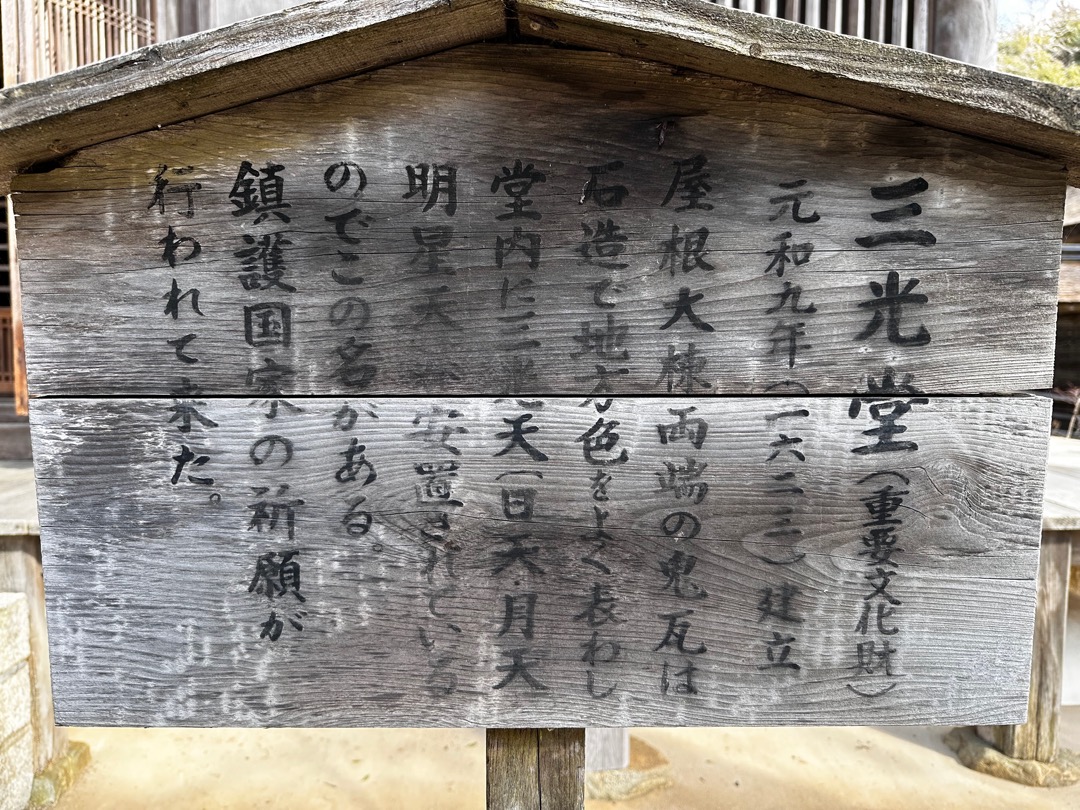 三光堂（重要文化財）
元和九年（一六二三）建立
屋根大棟両端の鬼瓦は
石造で地方色をよく表わし
堂内に三光天（日天・月天
明星天 安置されている
のでこの名がある。
鎮護国家の祈願が
行われて来た。